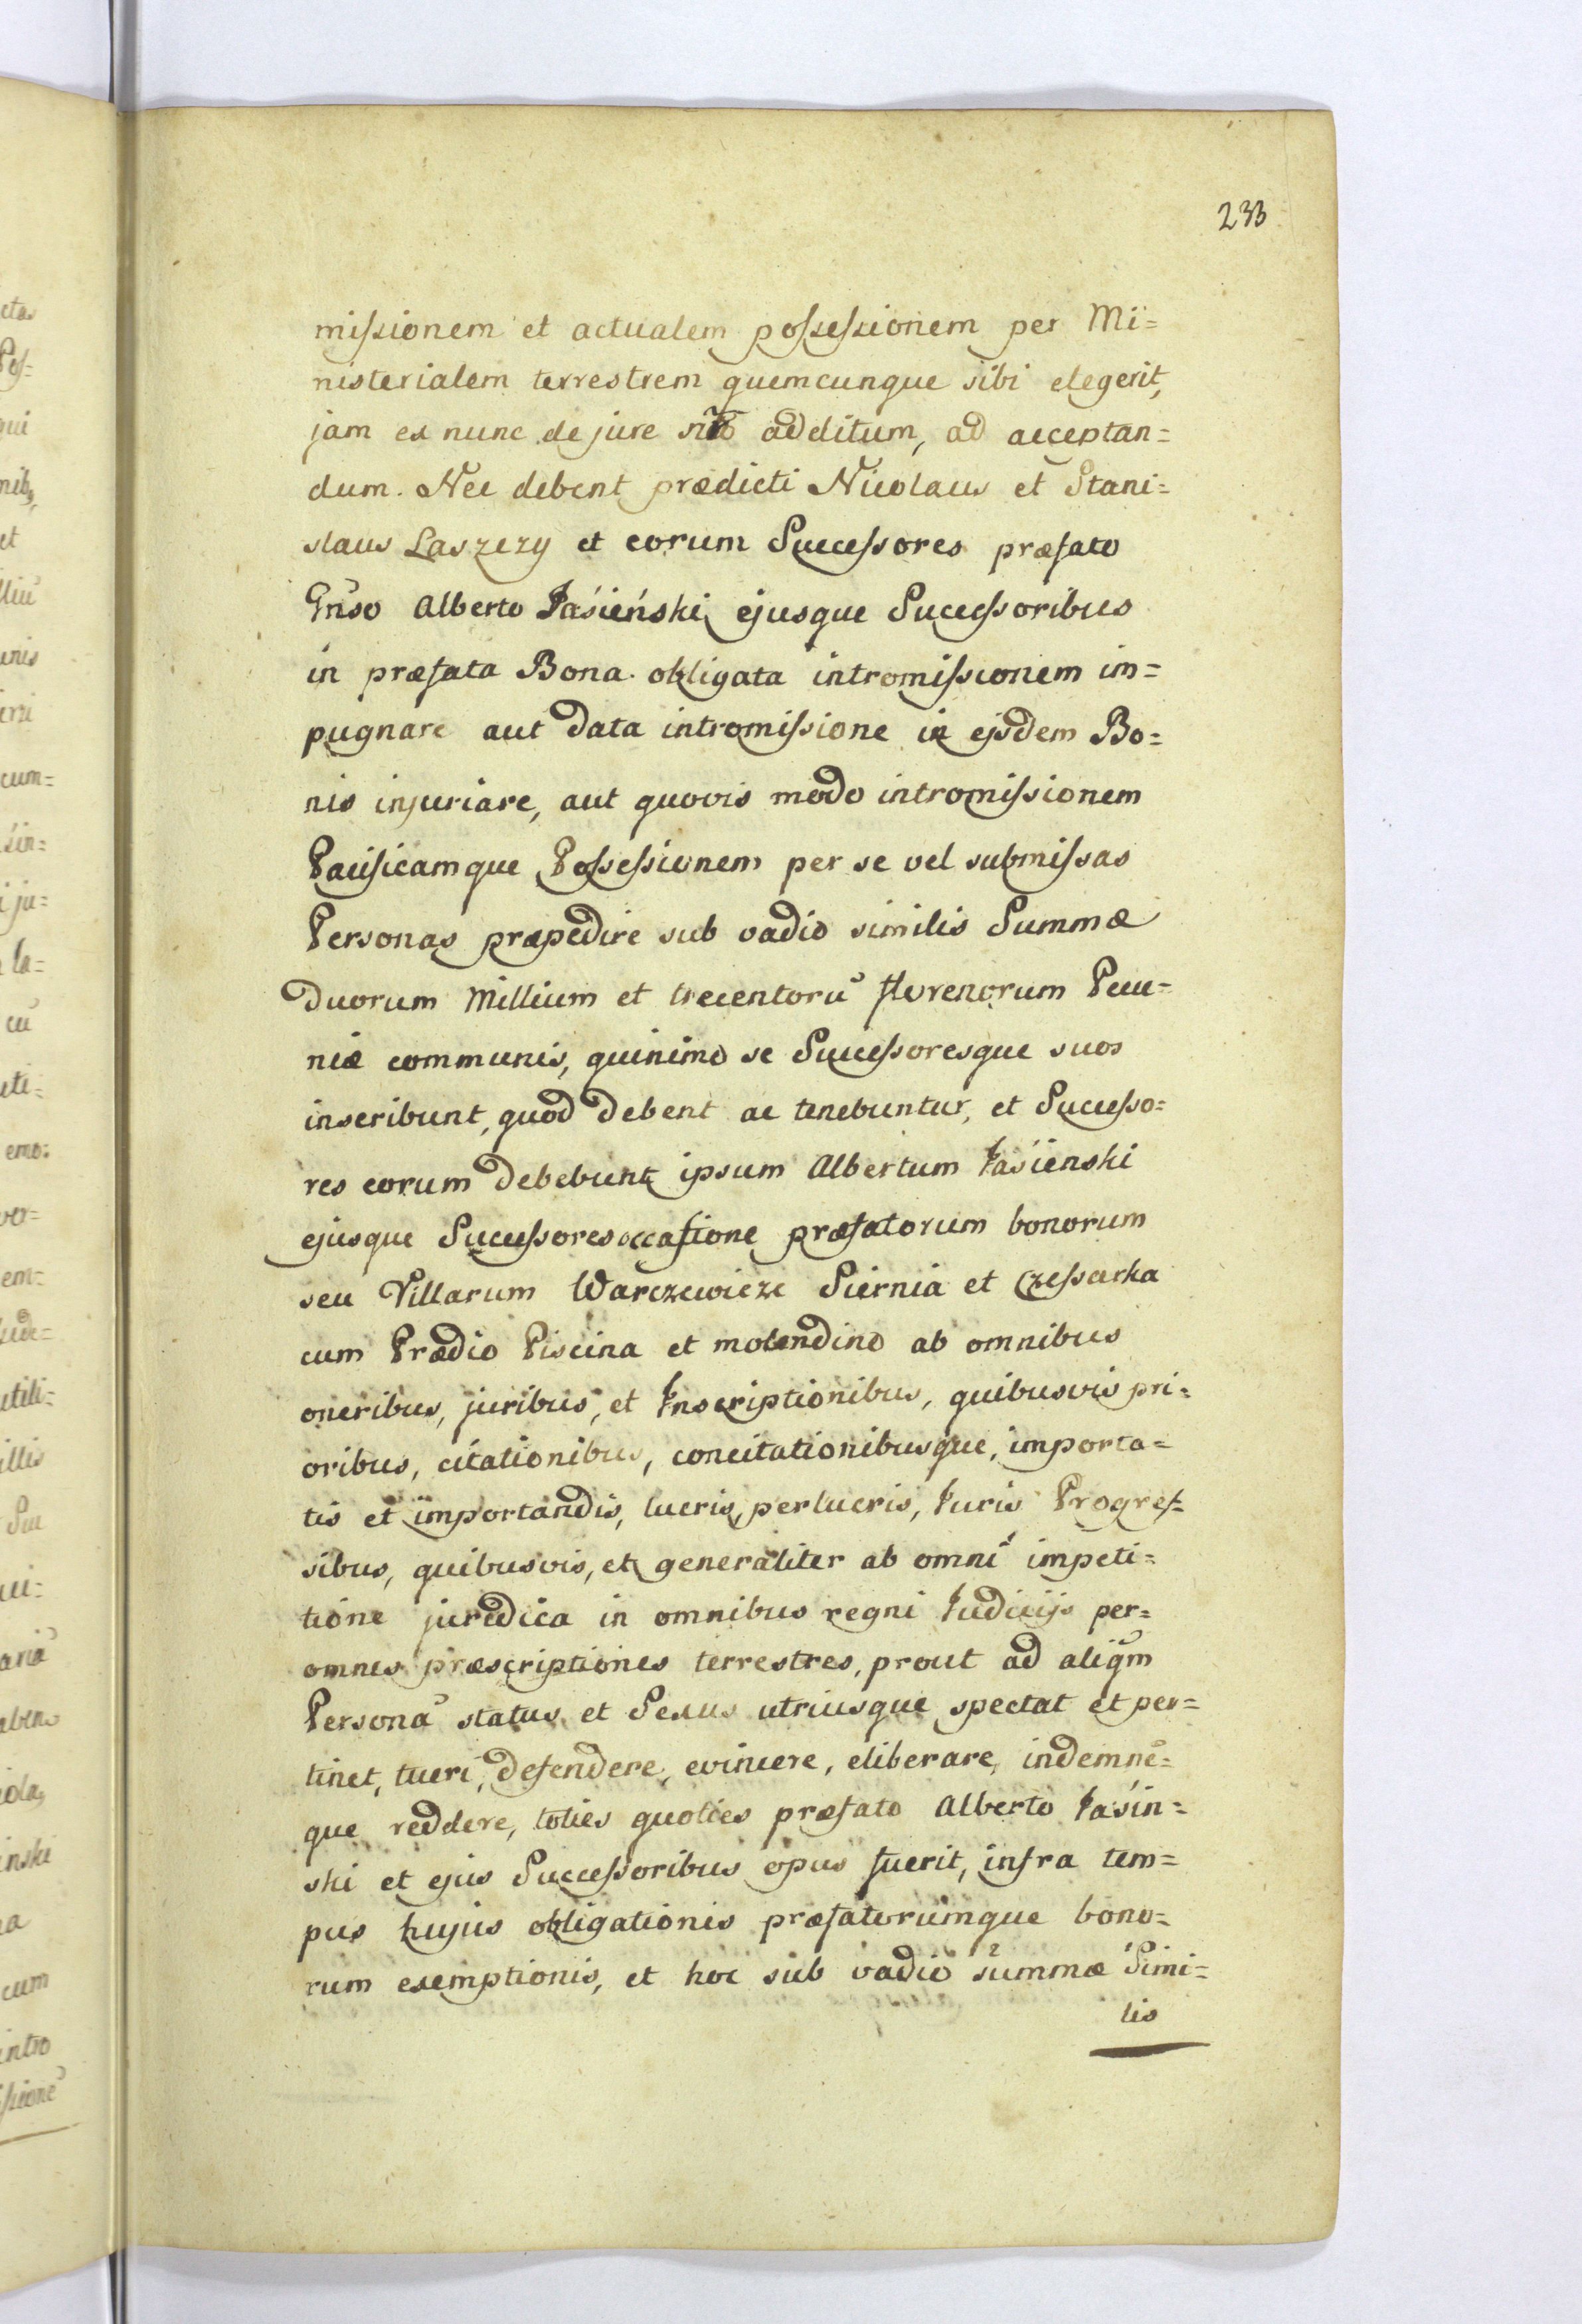 233
missionem et actualem possessionem per Mi=
nisterialem terrestrem quemcunque sibi elegerit,
jam ex nunc de jure additum, ad acceptan=
dum. Nec debent prædicti Nicolaus et Stani=
slaus Laszczy et eorum Successores præfato
Gnso Alberto Jasieński ejusque Successoribus
in præfata Bona obligata intromissionem im=
pugnare aut data intromissione in ejsdem Bo=
nis injuriare, aut quovis modo intromissionem
Pacificamque Possessionem per se vel submissas
Personas præpedire sub vadio similis Summæ
Duorum Millium et trecentorū florenorum Pecu=
niæ communis, quinimo se Successoresque suos
inscribunt, quod debent ac tenebuntur, et Successo=
res eorum debebunt ipsum Albertum Jasienski
ejusque Successores occasione præfatorum bonorum
seu Villarum Warczewicze Siernia et Czessarka
cum Prædio Piscina et molendino ab omnibus
oneribus, juribus, et Inscriptionibus, quibusvis pri=
oribus, citationibus, concitationibusque, importa=
tis et importandis, lucris, perlucris, Juris Progres=
sibus, quibusvis, et generaliter ab omni impeti=
tione juridica in omnibus regni Judicijs per=
omnes præscriptiones terrestres, prout ad aliqm̃
Personā status et Sexus utriusque spectat et per=
tinet, tueri, defendere, evincere, eliberare, indemnē=
que reddere, toties quoties præfato Alberto Jasin=
ski et ejus Successoribus opus fuerit, infra tem=
pus hujus obligationis præfatorumque bono=
rum exemptionis, et hoc sub vadio summæ Simi=
lis